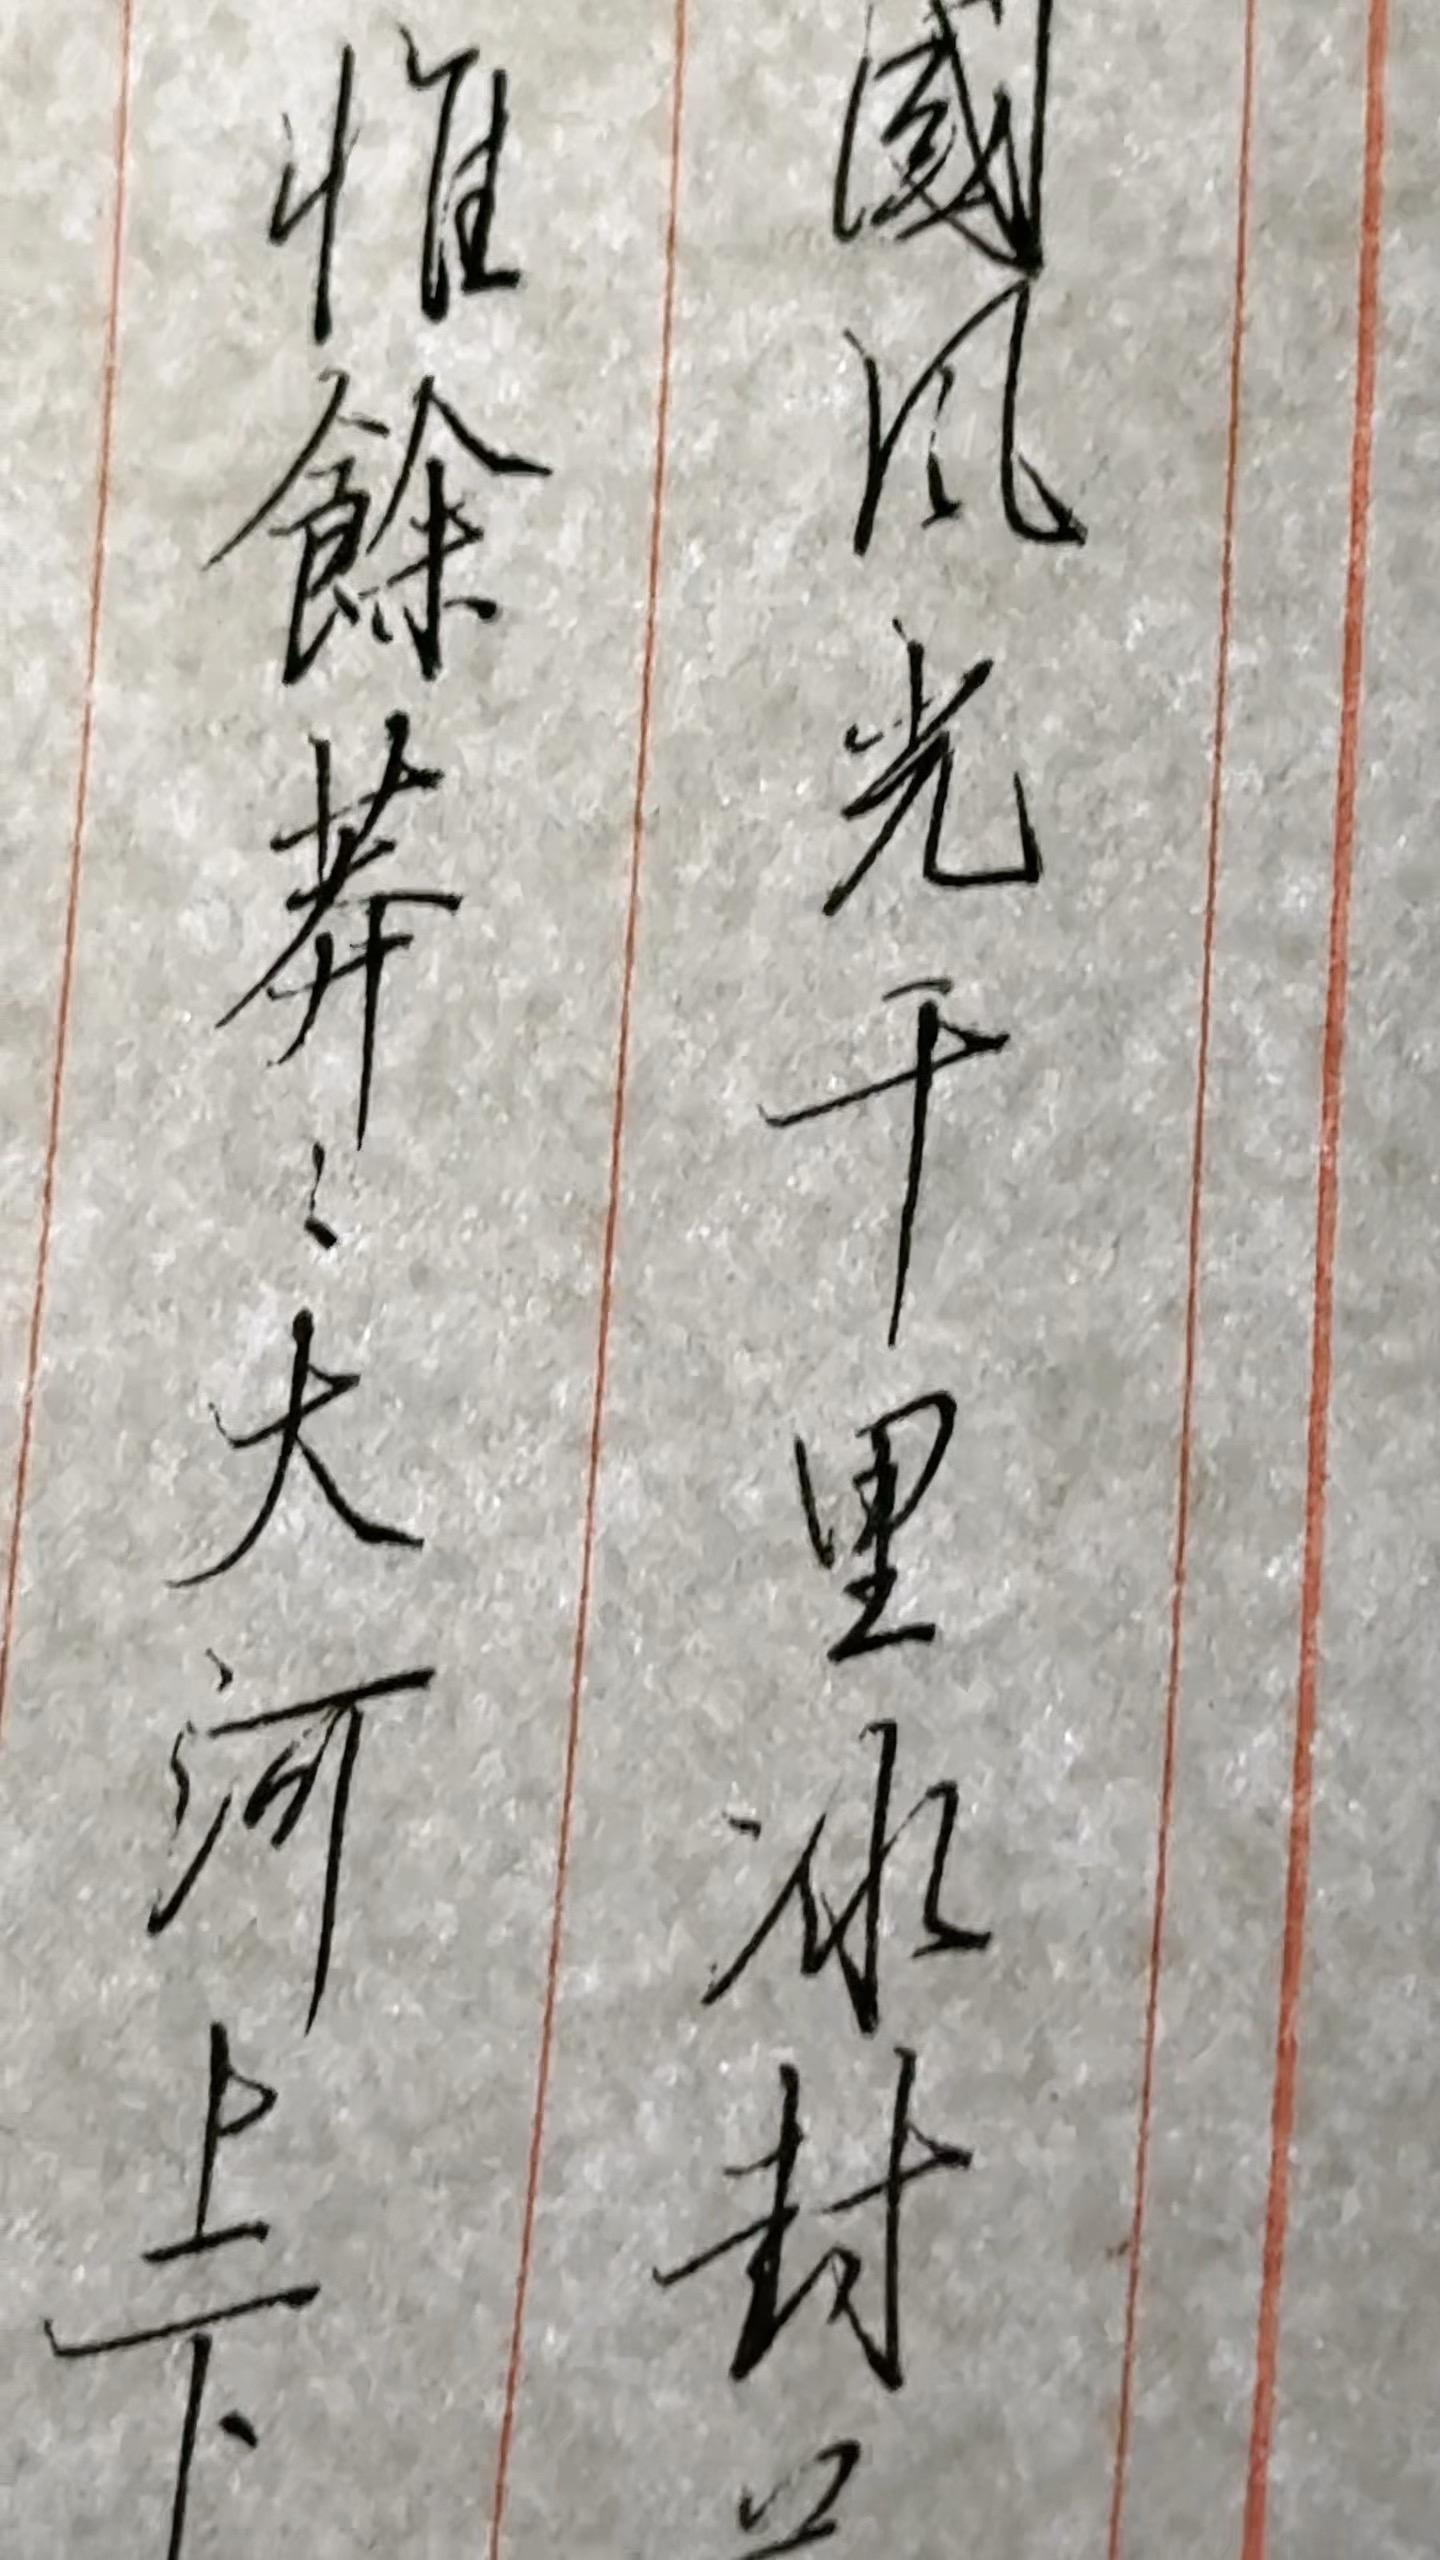 國風光千里冰封
惟餘莽〻大河上下